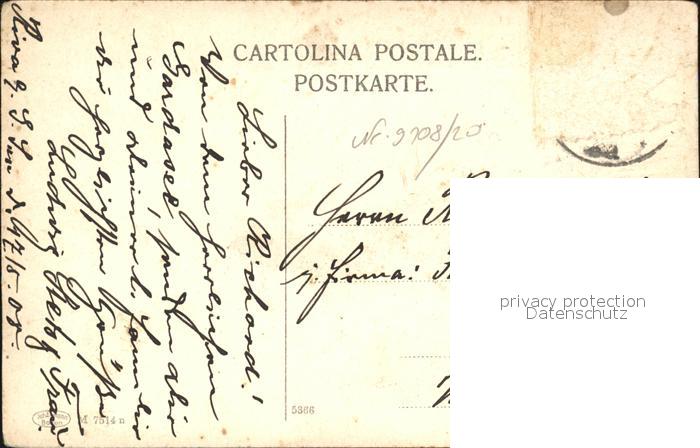 CARTOLINA POSTALE.
POSTKARTE.
Nr. 9708/20
Lieber Richard!
Von dem herrlichen
Gardasee senden dir
und deiner l. Familie
die herzlichsten Grüße
Ludwig
Frau
Riva
Herrn
i. Firma:
privacy protection
Datenschutz
5366
M 7514 n